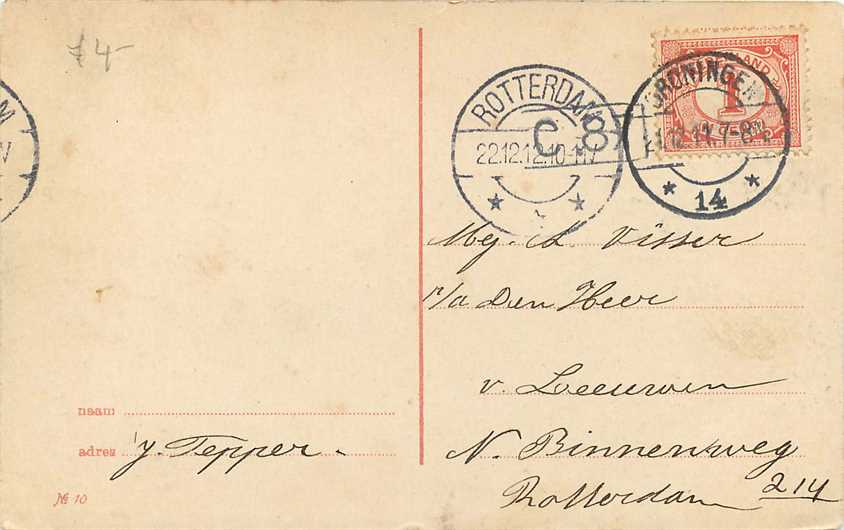 ROTTERDAM
22.12.12.10-11.V
C
8
GRONINGEN
14
1
Mej. A. Visser
p/a Den Heer
v. Leeuwen
N. Binnenweg
214
Rotterdam
naam
adres 'J. Tepper.
№ 10